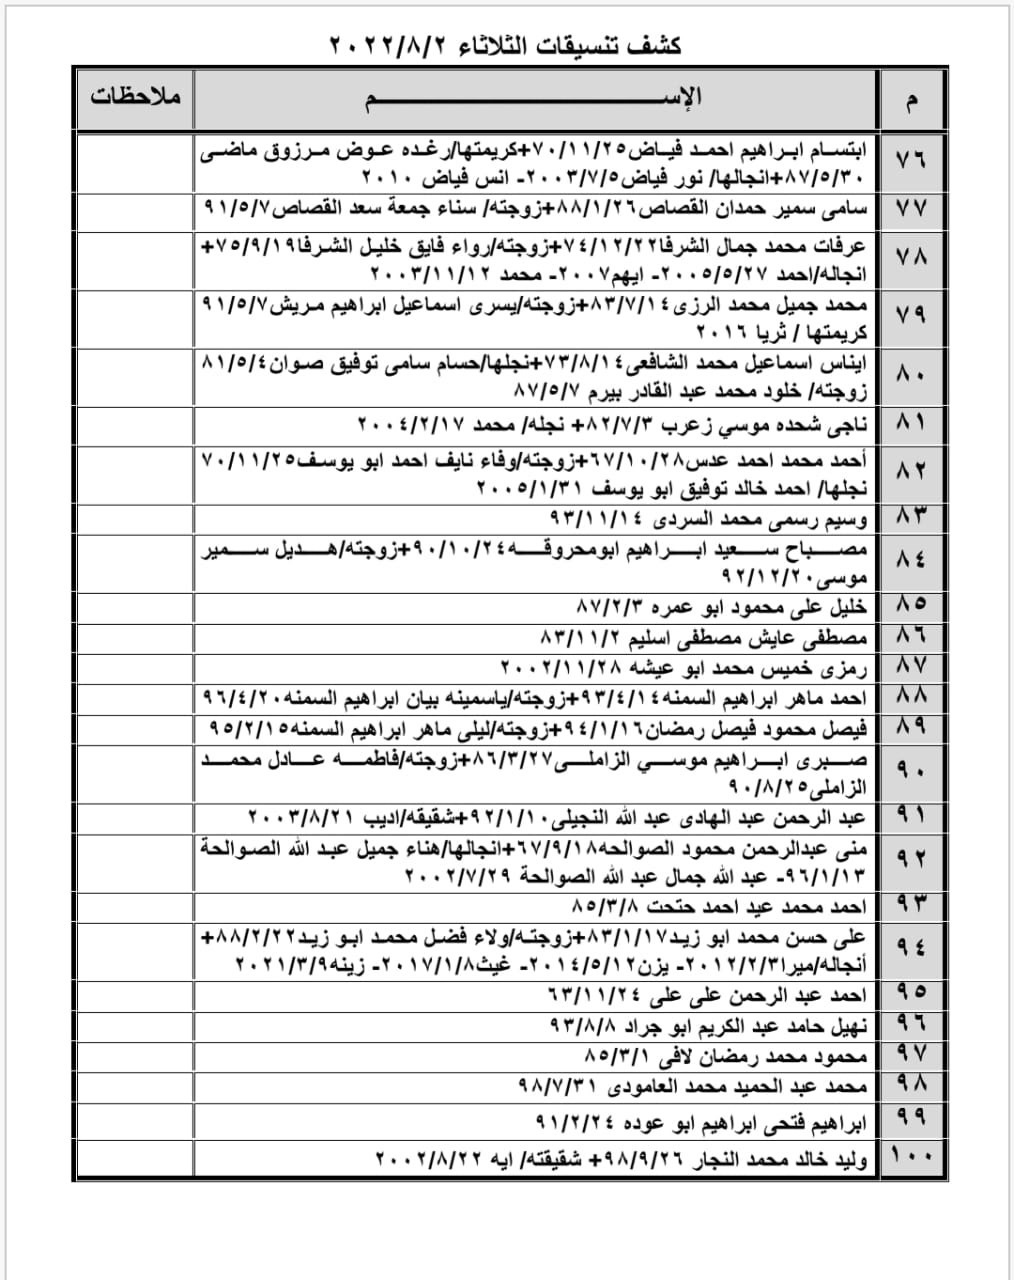 كشف تنسيقات الثلاثاء ٢٠٢٢/٨/٢
م الإسم ملاحظات
٧٦ ابتسام ابراهيم احمد فياض٧٠/١١/٢٥+كريمتها/رغده عوض مرزوق ماضى
٨٧/٥/٣٠+انجالها/ نور فياض٢٠٠٣/٧/٥- انس فياض ٢٠١٠
٧٧ سامى سمير حمدان القصاص٨٨/١/٢٦+زوجته/ سناء جمعة سعد القصاص٩١/٥/٧
٧٨ عرفات محمد جمال الشرفا٧٤/١٢/٢٢+زوجته/رواء فايق خليل الشرفا٧٥/٩/١٩+
انجاله/احمد ٢٠٠٥/٥/٢٧- ايهم٢٠٠٧- محمد ٢٠٠٣/١١/١٢
٧٩ محمد جميل محمد الرزى٨٣/٧/١٤+زوجته/يسرى اسماعيل ابراهيم مريش٩١/٥/٧
كريمتها / ثريا ٢٠١٦
٨٠ ايناس اسماعيل محمد الشافعى٧٣/٨/١٤+نجلها/حسام سامى توفيق صوان٨١/٥/٤
زوجته/ خلود محمد عبد القادر بيرم ٨٧/٥/٧
٨١ ناجى شحده موسي زعرب ٨٢/٧/٣+ نجله/ محمد ٢٠٠٤/٢/١٧
٨٢ أحمد محمد احمد عدس٦٧/١٠/٢٨+زوجته/وفاء نايف احمد ابو يوسف٧٠/١١/٢٥
نجلها/ احمد خالد توفيق ابو يوسف ٢٠٠٥/١/٣١
٨٣ وسيم رسمى محمد السردى ٩٣/١١/١٤
٨٤ مصباح سعيد ابراهيم ابومحروقه٩٠/١٠/٢٤+زوجته/هديل سمير
موسى٩٢/١٢/٢٠
٨٥ خليل على محمود ابو عمره ٨٧/٢/٣
٨٦ مصطفى عايش مصطفى اسليم ٨٣/١١/٢
٨٧ رمزى خميس محمد ابو عيشه ٢٠٠٢/١١/٢٨
٨٨ احمد ماهر ابراهيم السمنه٩٣/٤/١٤+زوجته/ياسمينه بيان ابراهيم السمنه٩٦/٤/٢٠
٨٩ فيصل محمود فيصل رمضان٩٤/١/١٦+زوجته/ليلى ماهر ابراهيم السمنه٩٥/٢/١٥
٩٠ صبرى ابراهيم موسي الزاملى٨٦/٣/٢٧+زوجته/فاطمه عادل محمد
الزاملى٩٠/٨/٢٥
٩١ عبد الرحمن عبد الهادى عبد الله النجيلى٩٢/١/١٠+شقيقه/اديب ٢٠٠٣/٨/٢١
٩٢ منى عبدالرحمن محمود الصوالحه٦٧/٩/١٨+انجالها/هناء جميل عبد الله الصوالحة
٩٦/١/١٣- عبد الله جمال عبد الله الصوالحة ٢٠٠٢/٧/٢٩
٩٣ احمد محمد عيد احمد حتحت ٨٥/٣/٨
٩٤ على حسن محمد ابو زيد٨٣/١/١٧+زوجته/ولاء فضل محمد ابو زيد٨٨/٢/٢٢+
أنجاله/ميرا٢٠١٢/٢/٣- يزن٢٠١٤/٥/١٢- غيث٢٠١٧/١/٨- زينه٢٠٢١/٣/٩
٩٥ احمد عبد الرحمن على على ٦٣/١١/٢٤
٩٦ نهيل حامد عبد الكريم ابو جراد ٩٣/٨/٨
٩٧ محمود محمد رمضان لافى ٨٥/٣/١
٩٨ محمد عبد الحميد محمد العامودى ٩٨/٧/٣١
٩٩ ابراهيم فتحى ابراهيم ابو عوده ٩١/٢/٢٤
١٠٠ وليد خالد محمد النجار ٩٨/٩/٢٦+ شقيقته/ ايه ٢٠٠٢/٨/٢٢